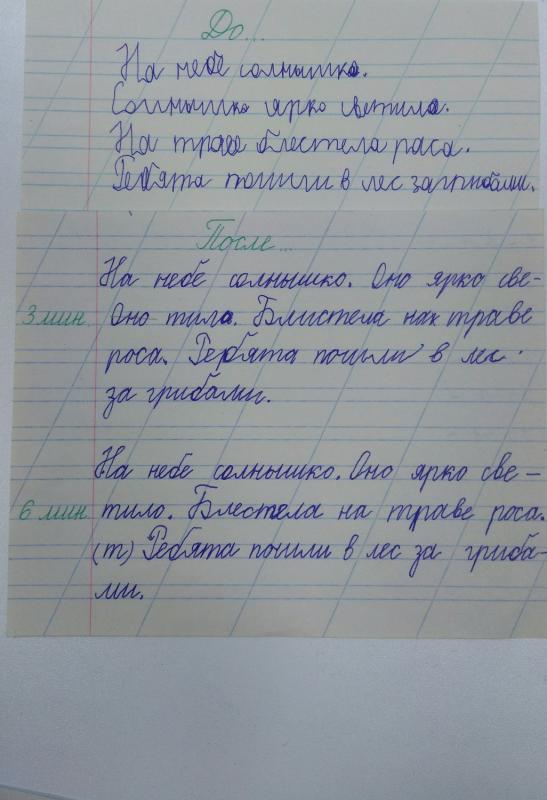 До...
На небе солнышко.
Солнышко ярко светила.
На траве блестела раса.
Ребята пошли в лес загрибами.
После...
На небе солнышко. Оно ярко све-
3 мин Оно тило. Блистела нах траве
роса. Ребята пошли в лес.
за грибами.
На небе солнышко. Оно ярко све-
6 мин тило. Блестела на траве роса.
(т) Ребята пошли в лес за гриба-
ми.